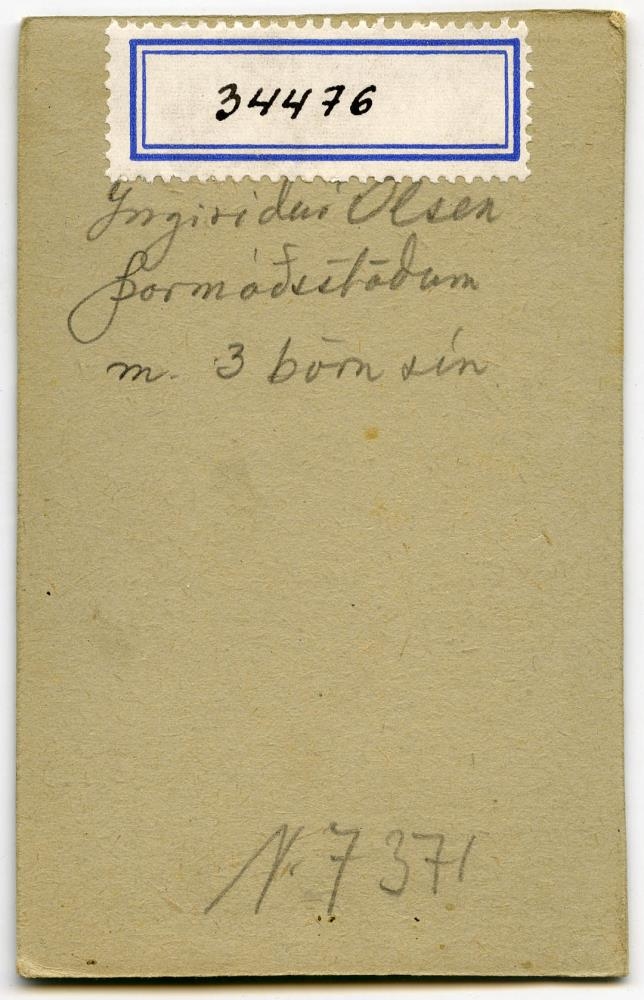 34476
Ingiriður Olsen
Þormóðsstöðum
m. 3 börn sín
N. 7371